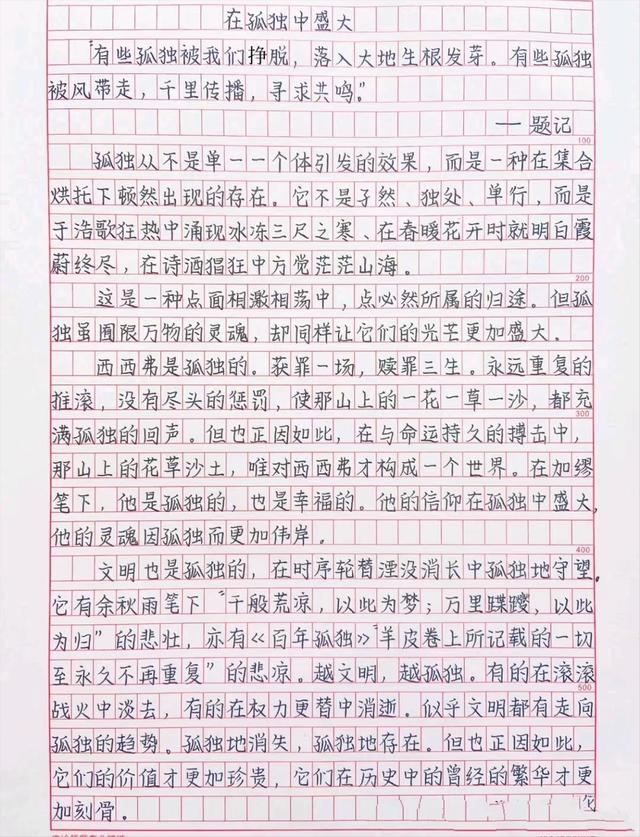 在孤独中盛大
“有些孤独被我们挣脱，落入大地生根发芽。有些孤独
被风带走，千里传播，寻求共鸣。”
——题记
100
孤独从不是单一一个体引发的效果，而是一种在集合
烘托下顿然出现的存在。它不是孑然、独处、单行，而是
于浩歌狂热中涌现冰冻三尺之寒、在春暖花开时就明白霞
蔚终尽，在诗酒猖狂中方觉茫茫山海。
200
这是一种点面相激相荡中，点必然所属的归途。但孤
独虽囿限万物的灵魂，却同样让它们的光芒更加盛大。
西西弗是孤独的。获罪一场，赎罪三生。永远重复的
推滚，没有尽头的惩罚，使那山上的一花一草一沙，都充
300
满孤独的回声。但也正因如此，在与命运持久的搏击中，
那山上的花草沙土，唯对西西弗才构成一个世界。在加缪
笔下，他是孤独的，也是幸福的。他的信仰在孤独中盛大，
他的灵魂因孤独而更加伟岸。
400
文明也是孤独的，在时序轮替湮没消长中孤独地守望。
它有余秋雨笔下“千般荒凉，以此为梦；万里蹀躞，以此
为归”的悲壮，亦有《百年孤独》“羊皮卷上所记载的一切
至永久不再重复”的悲凉。越文明，越孤独。有的在滚滚
500
战火中淡去，有的在权力更替中消逝。似乎文明都有走向
孤独的趋势。孤独地消失，孤独地存在。但也正因如此，
它们的价值才更加珍贵，它们在历史中的曾经的繁华才更
加刻骨。